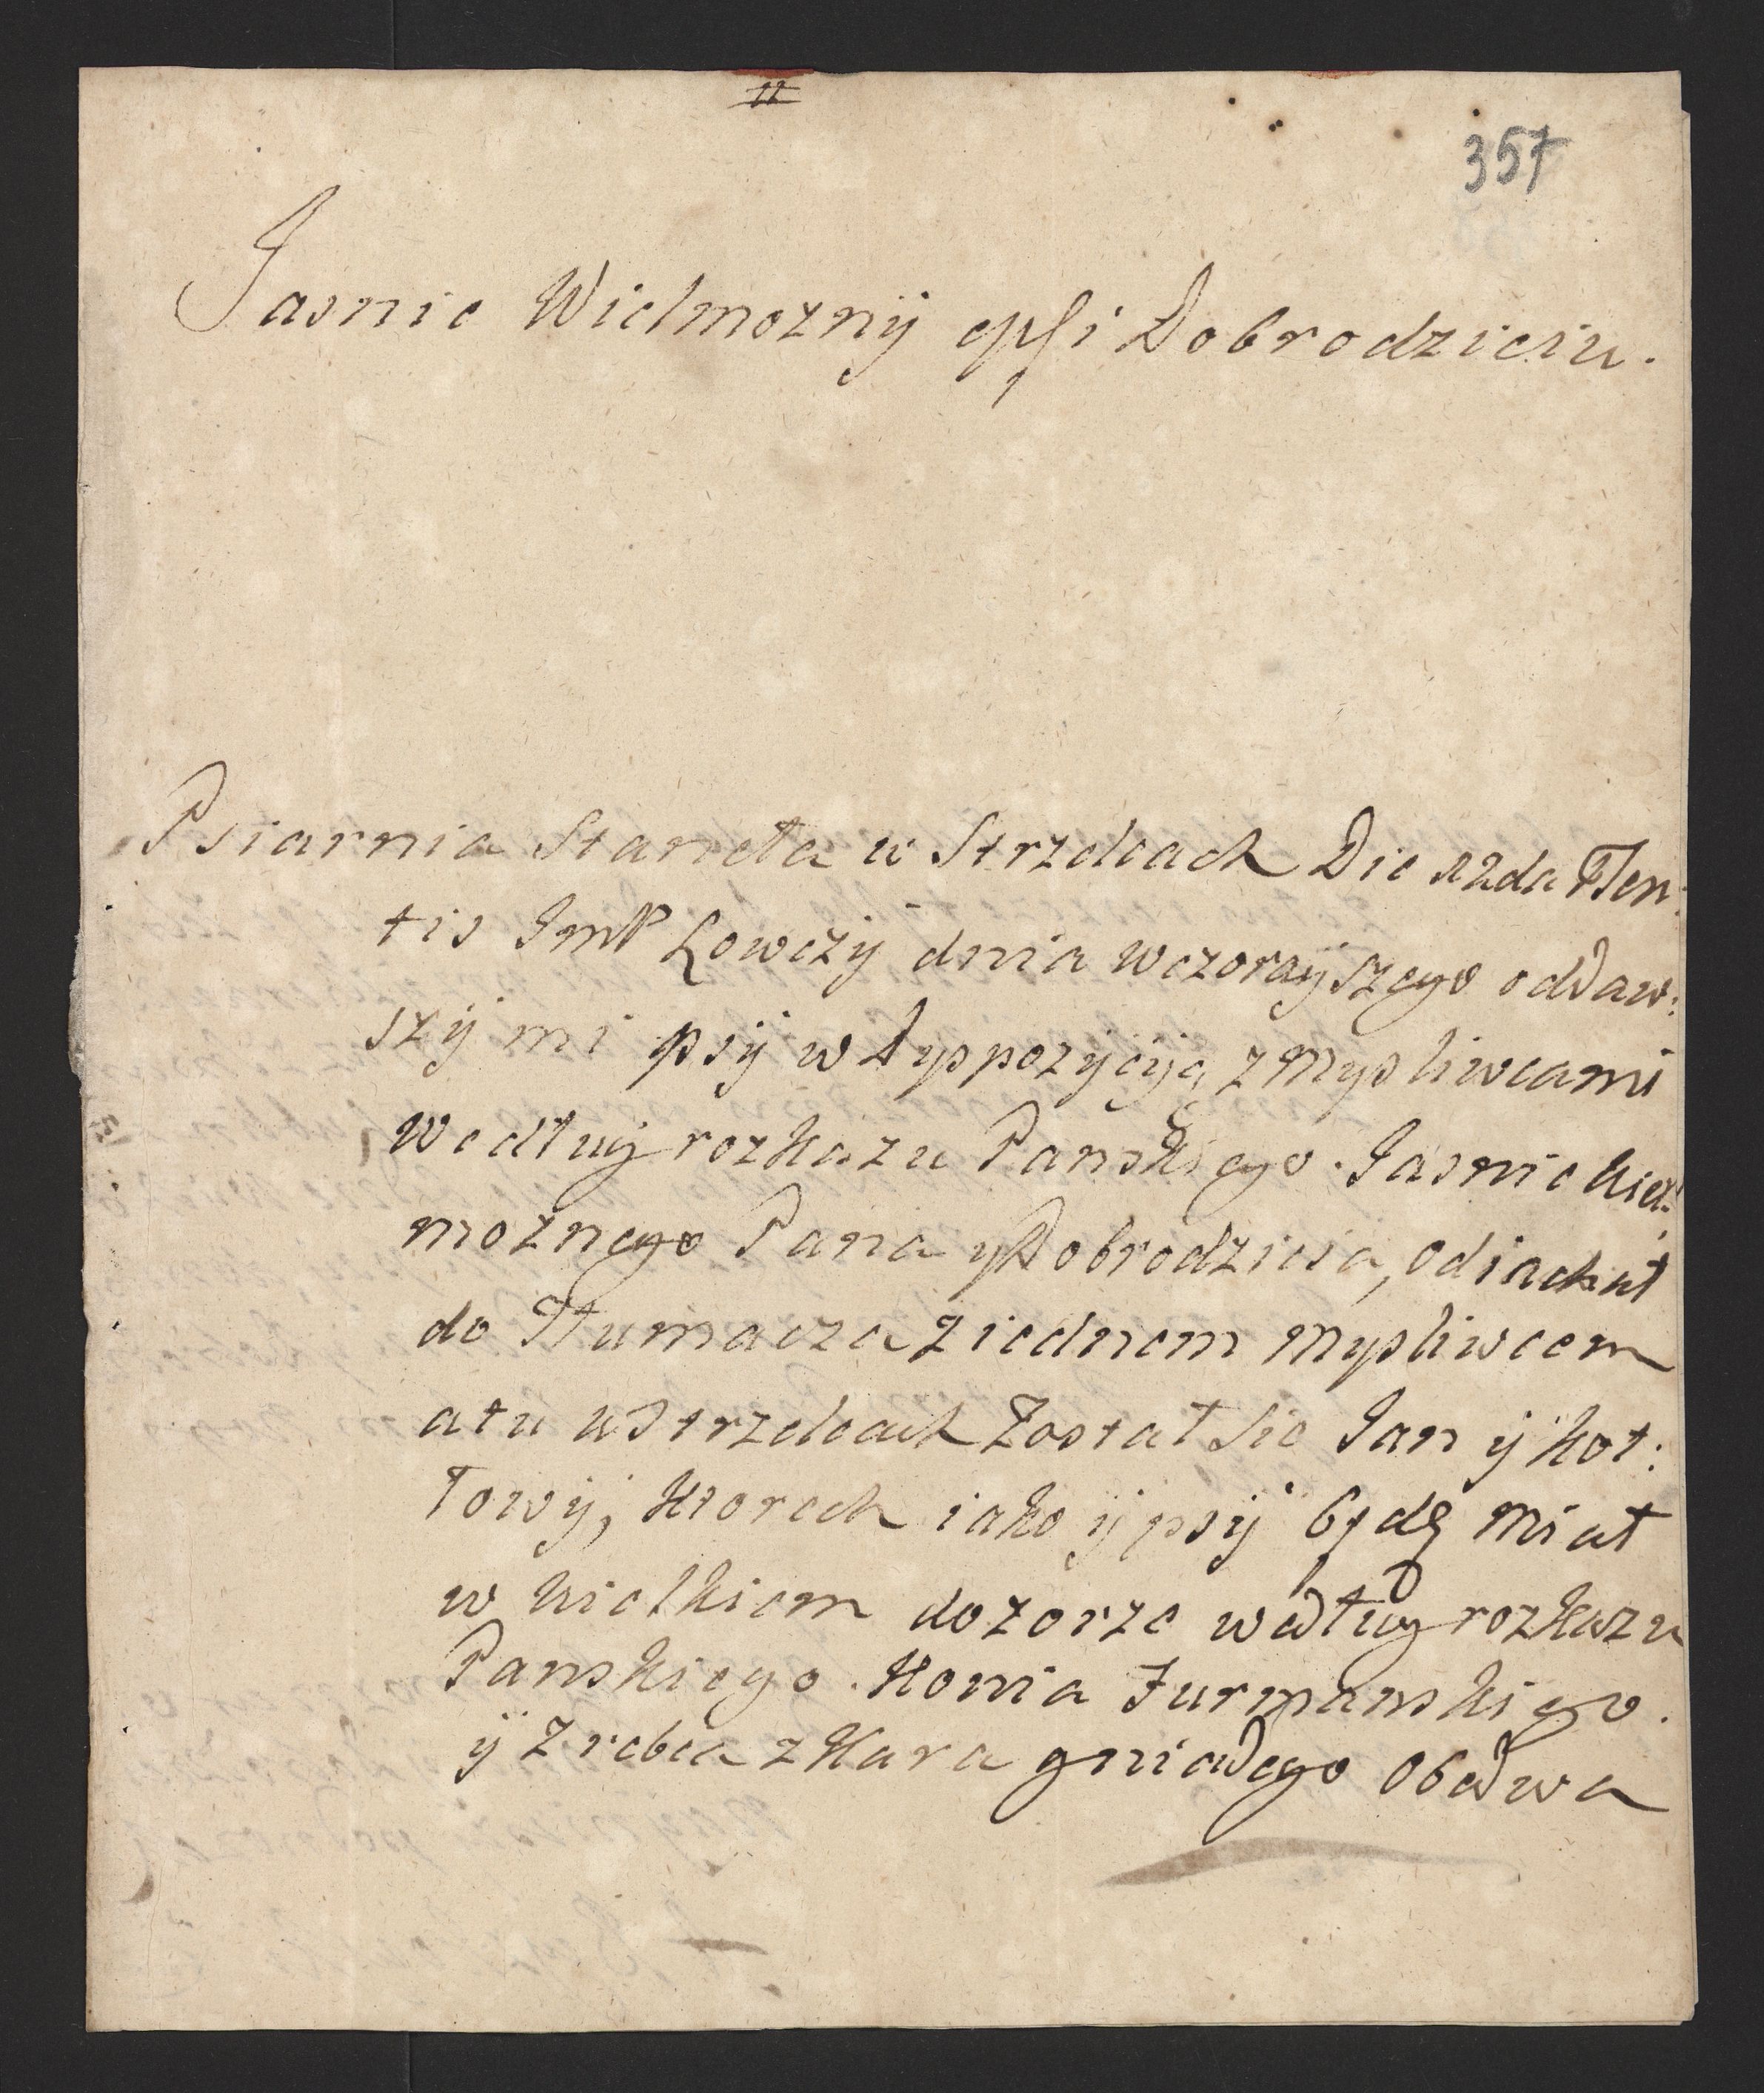 11
357
Jasnie Wielmozny Dobrodzieiu.
Psiarnia Staneła w Strzelcach Die 12da Praesen:
tis JmP Łowczÿ dnia wczoraÿszego oddaw:
szÿ mi psÿ w Dyspozÿcÿją z Mysliwcami
wedtug rozkazu Panskiego. Jasnie Wiel:
moznego Pana y Dobrodzieia, odiachał
do Tłumacza z iednem Mysliwcem
a tu w Strzelcach został sie Jan ÿ Kot:
łowÿ, Ktorech iako ÿ psÿ będę Miał
w Wielkiem dozorze wedtug rozkazu
Panskiego. Konia Furmanskiego.
ÿ Zrebca z Kara gniadego obadwa